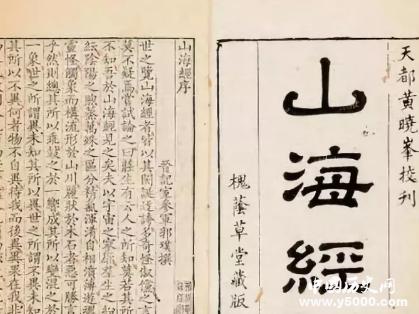 天都黃曉峯校刊
山海經
槐蔭草堂藏版
山海經序
晉記室參軍郭璞撰
世之覽山海經者皆以其閎誕迂誇多奇怪俶儻之言
莫不疑焉嘗試論之曰莊生有云人之所知莫若其所
不知吾於山海經見之矣夫以宇宙之寥廓羣生之紛
紜陰陽之煦蒸萬殊之區分精氣渾淆自相濆薄遊魂
靈怪觸象而構流形於山川麗狀於木石者惡可勝言
乎然則總其所以乖鼓之於一響成其所以變混之於
一象世之所謂異未知其所以異世之所謂不異未知
其所以不異何者物不自異待我而後異異果在我非
中国历史网
www.y5000.com